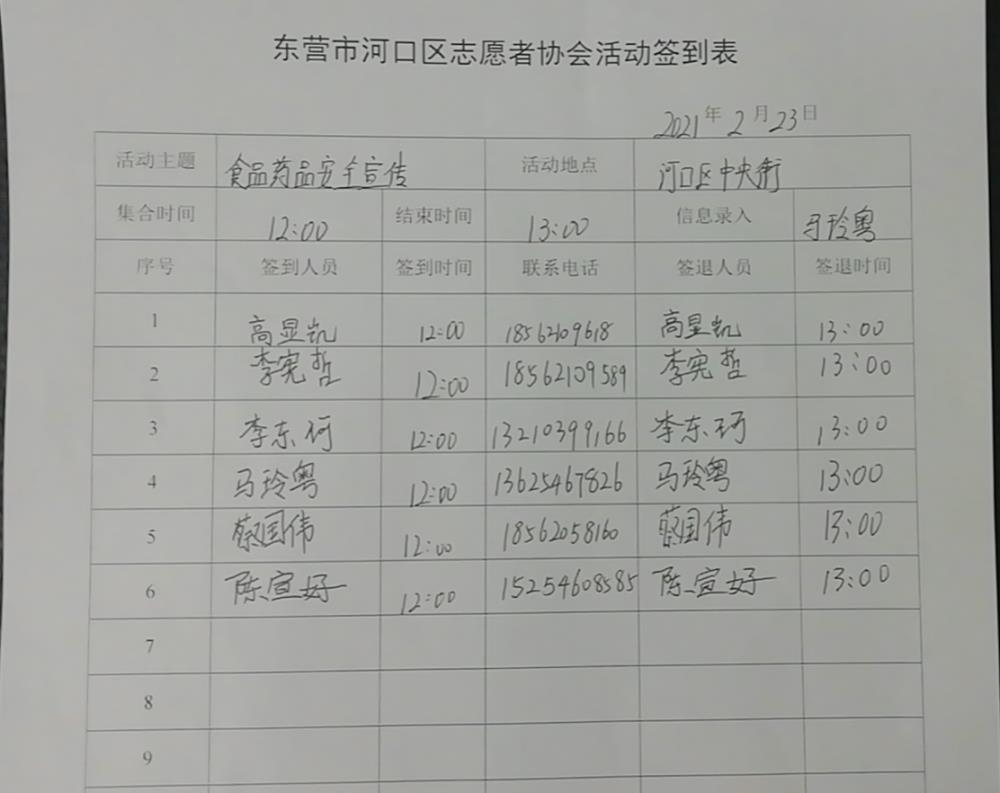 东营市河口区志愿者协会活动签到表
2021年2月23日
活动主题 食品药品安全宣传 活动地点 河口区中央街
集合时间 12:00 结束时间 13:00 信息录入 马玲粤
序号 签到人员 签到时间 联系电话 签退人员 签退时间
1 高显凯 12:00 18562109618 高显凯 13:00
2 李宪哲 12:00 18562109589 李宪哲 13:00
3 李东河 12:00 13210399166 李东珂 13:00
4 马玲粤 12:00 13625467826 马玲粤 13:00
5 蔡国伟 12:00 18562058160 蔡国伟 13:00
6 陈宣好 12:00 15254608585 陈宣好 13:00
7
8
9